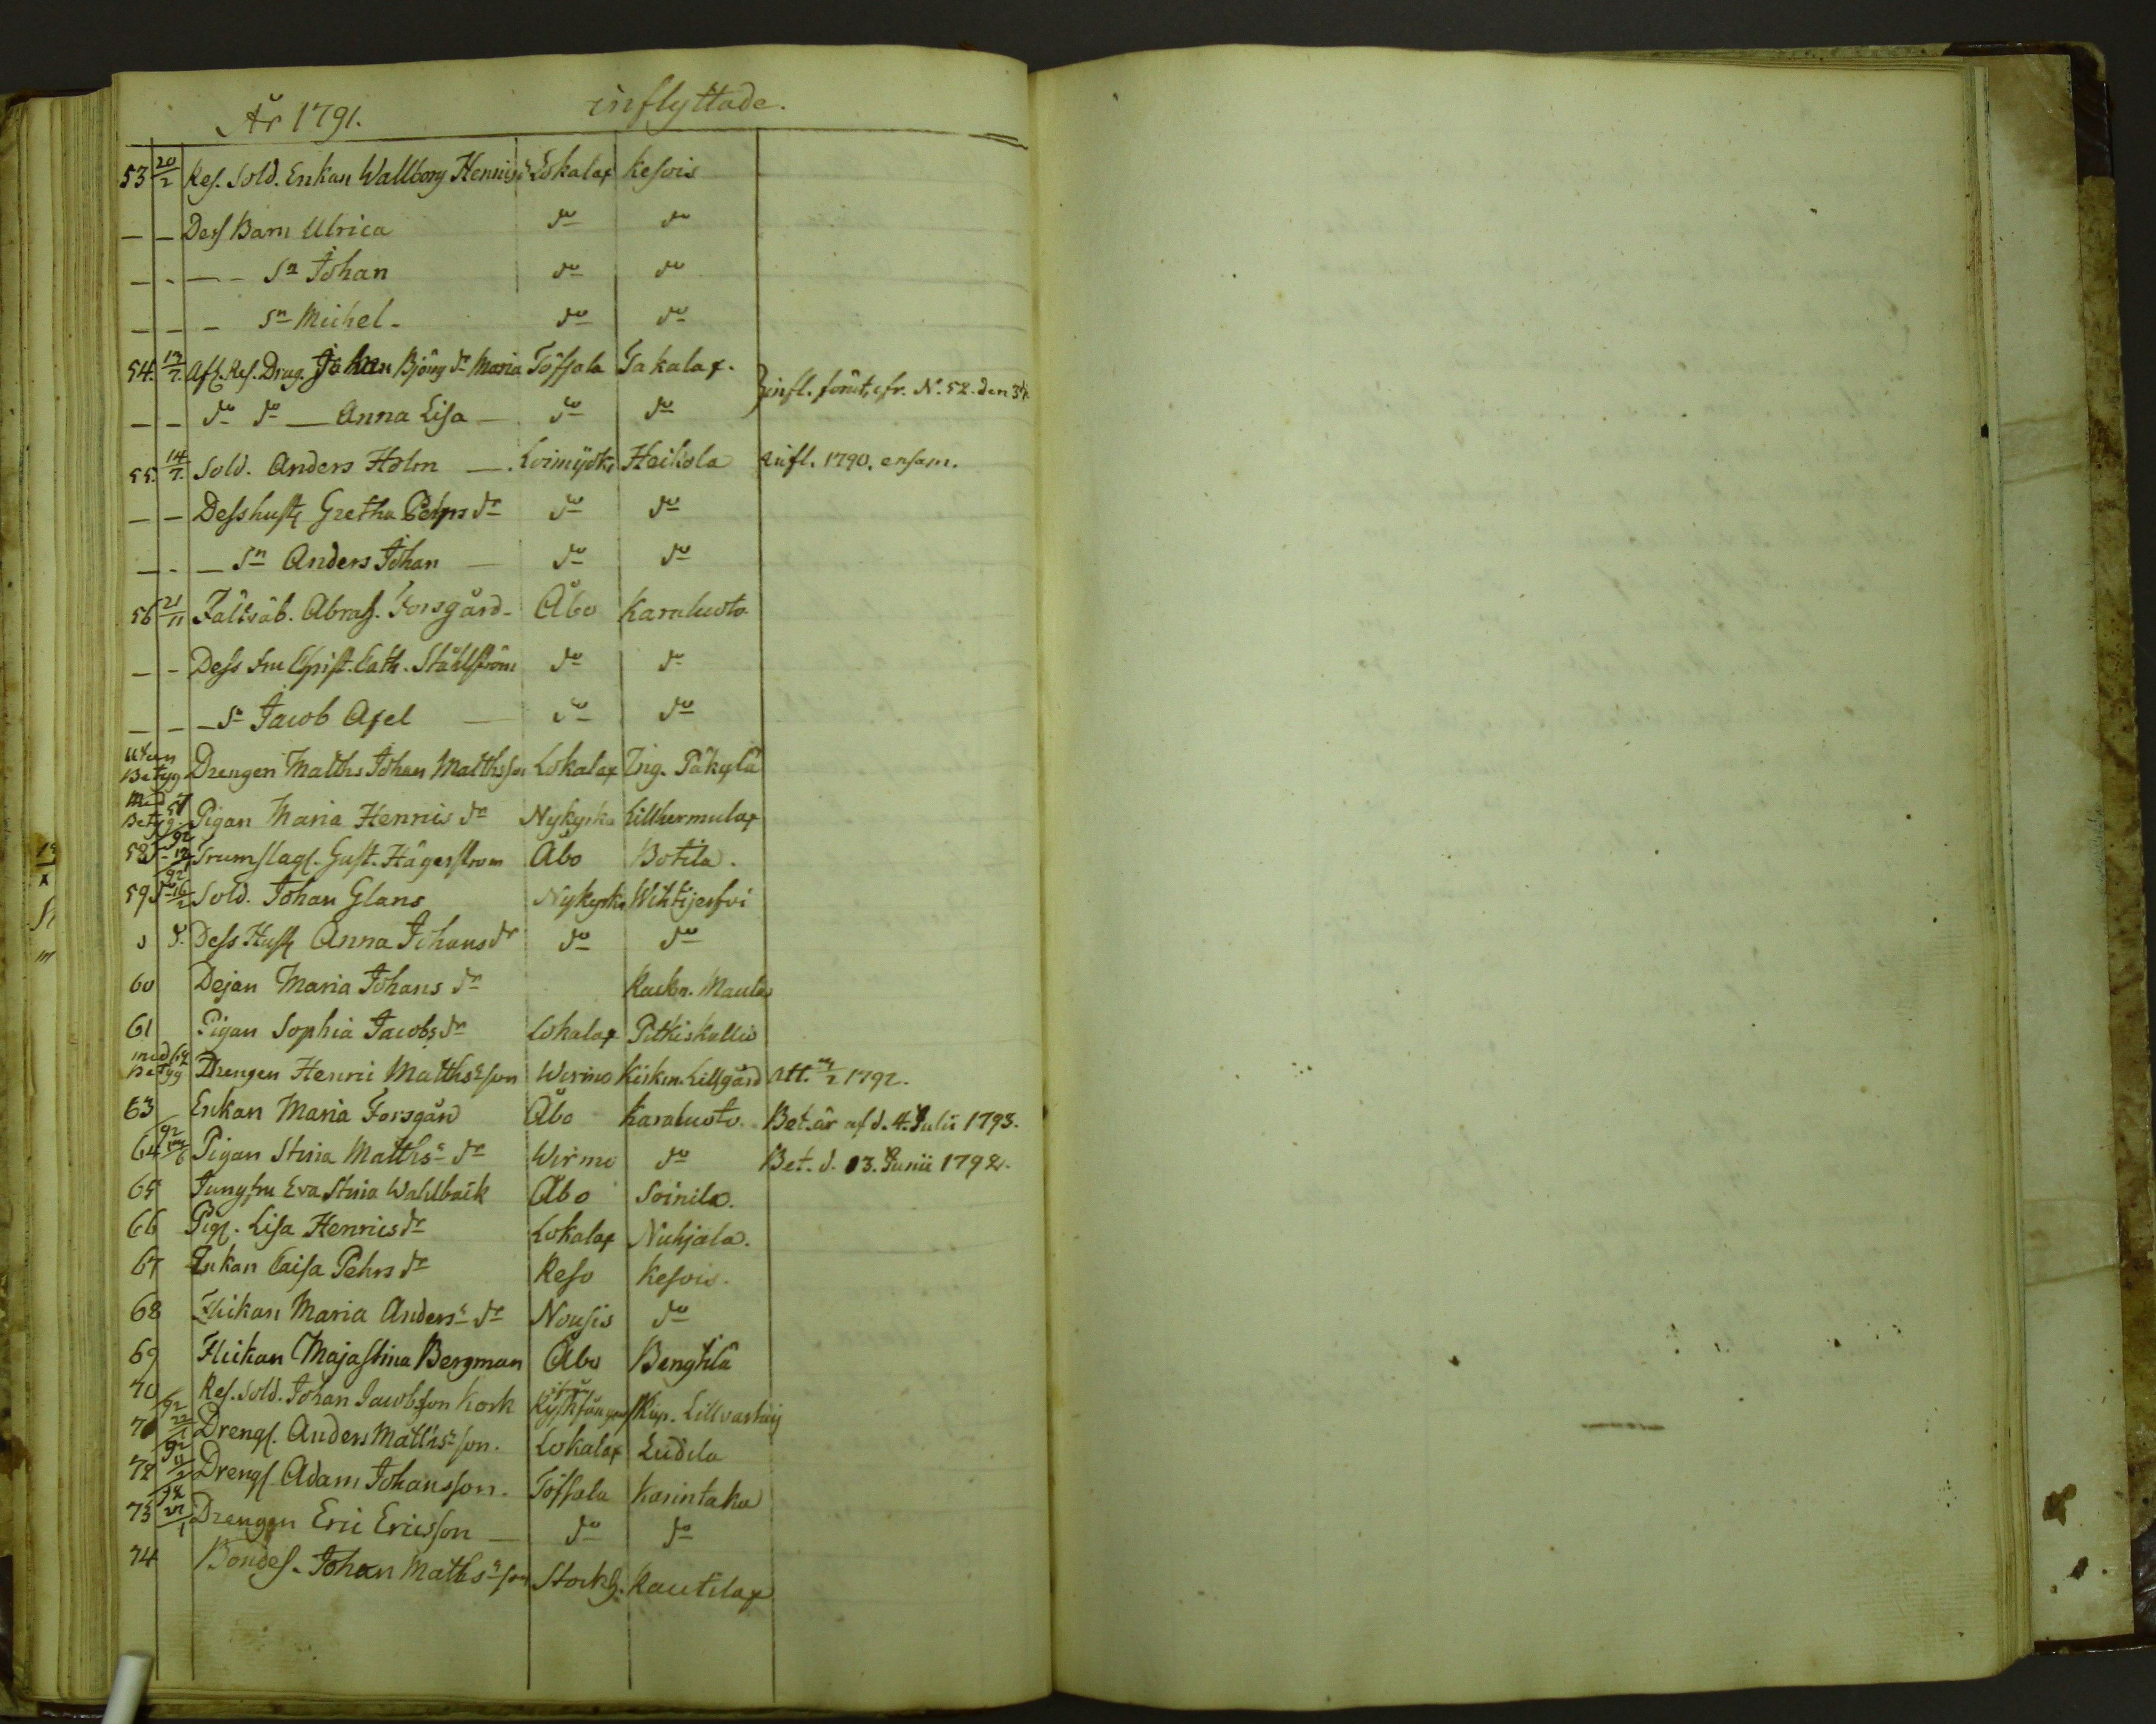 År 1791. inflyttade.
53 20/2 Res. Sold. Enkan Wallborg Henrics dr Lokalax Kesvis
— — Dess Barn Ulrica do do
— - — - Sn Johan do do
— — - Sn Michel - do do
54. 13/7. Afsk. Res. Drag. Johan Björng dr Maria Töfsala Takalax.
— — do do — Anna Lisa — do do } infl. förut, cfr. N. 52. den 3/
55. 14/7. Sold. Anders Holm — Loimijoki Heikola infl. 1790. ensam.
— — Dess hust. Gretha Pehrs dr do do
— - — Sn Anders Johan — do do
56 21/11 Fältväb. Abrah. Forsgård - Åbo Karaluoto
— - Dess Fru Christ. Cath. Ståhlström do do
— — — Sn Jacob Axel — do do
Utan Betyg Drengen Matths Johan Mattsson Lokalax Ing. Päkylä
Med Betyg 57 Pigan Maria Henrics dr Nykyrko Lillhermulax
58 92 Trumslag. Gust. Hägerstrom Åbo Botila.
59 92 16/2 Sold. Johan Glans Nykyrko Wihtijerfvi
d. Dess Hust. Anna Johans dr do do
60 Dejan Maria Johans dr Maula
61 Pigan Sophia Jacobs dr Lokalax Pitkiskallio
med Betyg 62 Drengen Henric Matths son Wirmo Kirkm. Lillgård 1792.
63 Enkan Maria Forsgård Åbo Karaluoto. Bet. är af d. 4. Julii 1793.
64 92 Pigan Stina Matths dr Wirmo do Bet. d. 13. Junii 1792.
65 Jungfru Eva Stina Wahlbäck Åbo Soinila.
66 Pig. Lisa Henrics dr Lokalax Nuhjala.
67 Enkan Caisa Pehrs dr Reso Kesvis.
68 Flickan Maria Anders dr Nousis do
69 Flickan Maja Stina Bergman Åbo Bengtilä
70 Res. Sold. Johan Jacobsson Kock Kap. Lillvarhaij
71 92 22/1 Drengs. Anders Matths son. Lokalax Eudila
72 92 11/2 Drengs. Adam Johansson. Töfsala Karintaka
73 92 27/1 Drengen Eric Ericsson — do do
74 Bondes. Johan Maths son Stockh. Rautilax